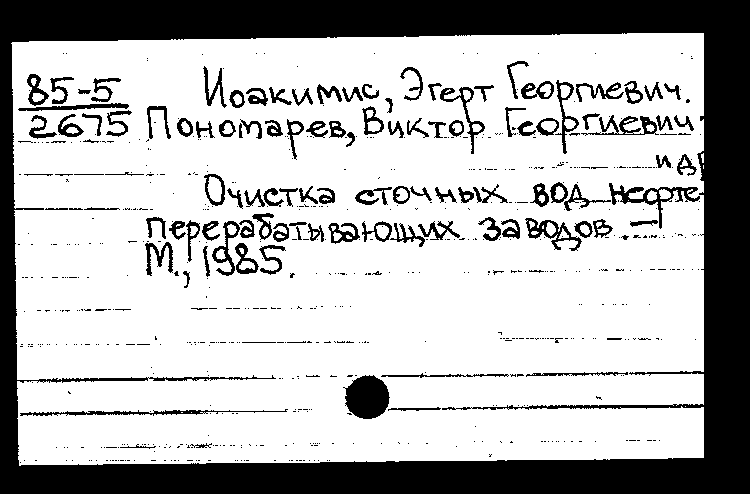 85-5 Иоакимис, Эгерт Георгиевич.
2675 Пономарев, Виктор Георгиевич
и др
Очистка сточных вод нефте-
перерабатывающих заводов. —
М., 1985.